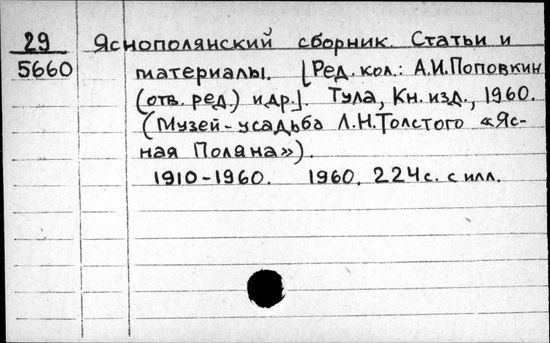 29 Яснополянский сборник. Статьи и
5660 материалы. [Ред. кол.: А.И.Поповкин
(отв. ред.) и др.]. Тула, Кн. изд., 1960.
(Музей-усадьба Л.Н.Толстого «Яс-
ная Поляна»).
1910-1960. 1960. 224 с. с илл.